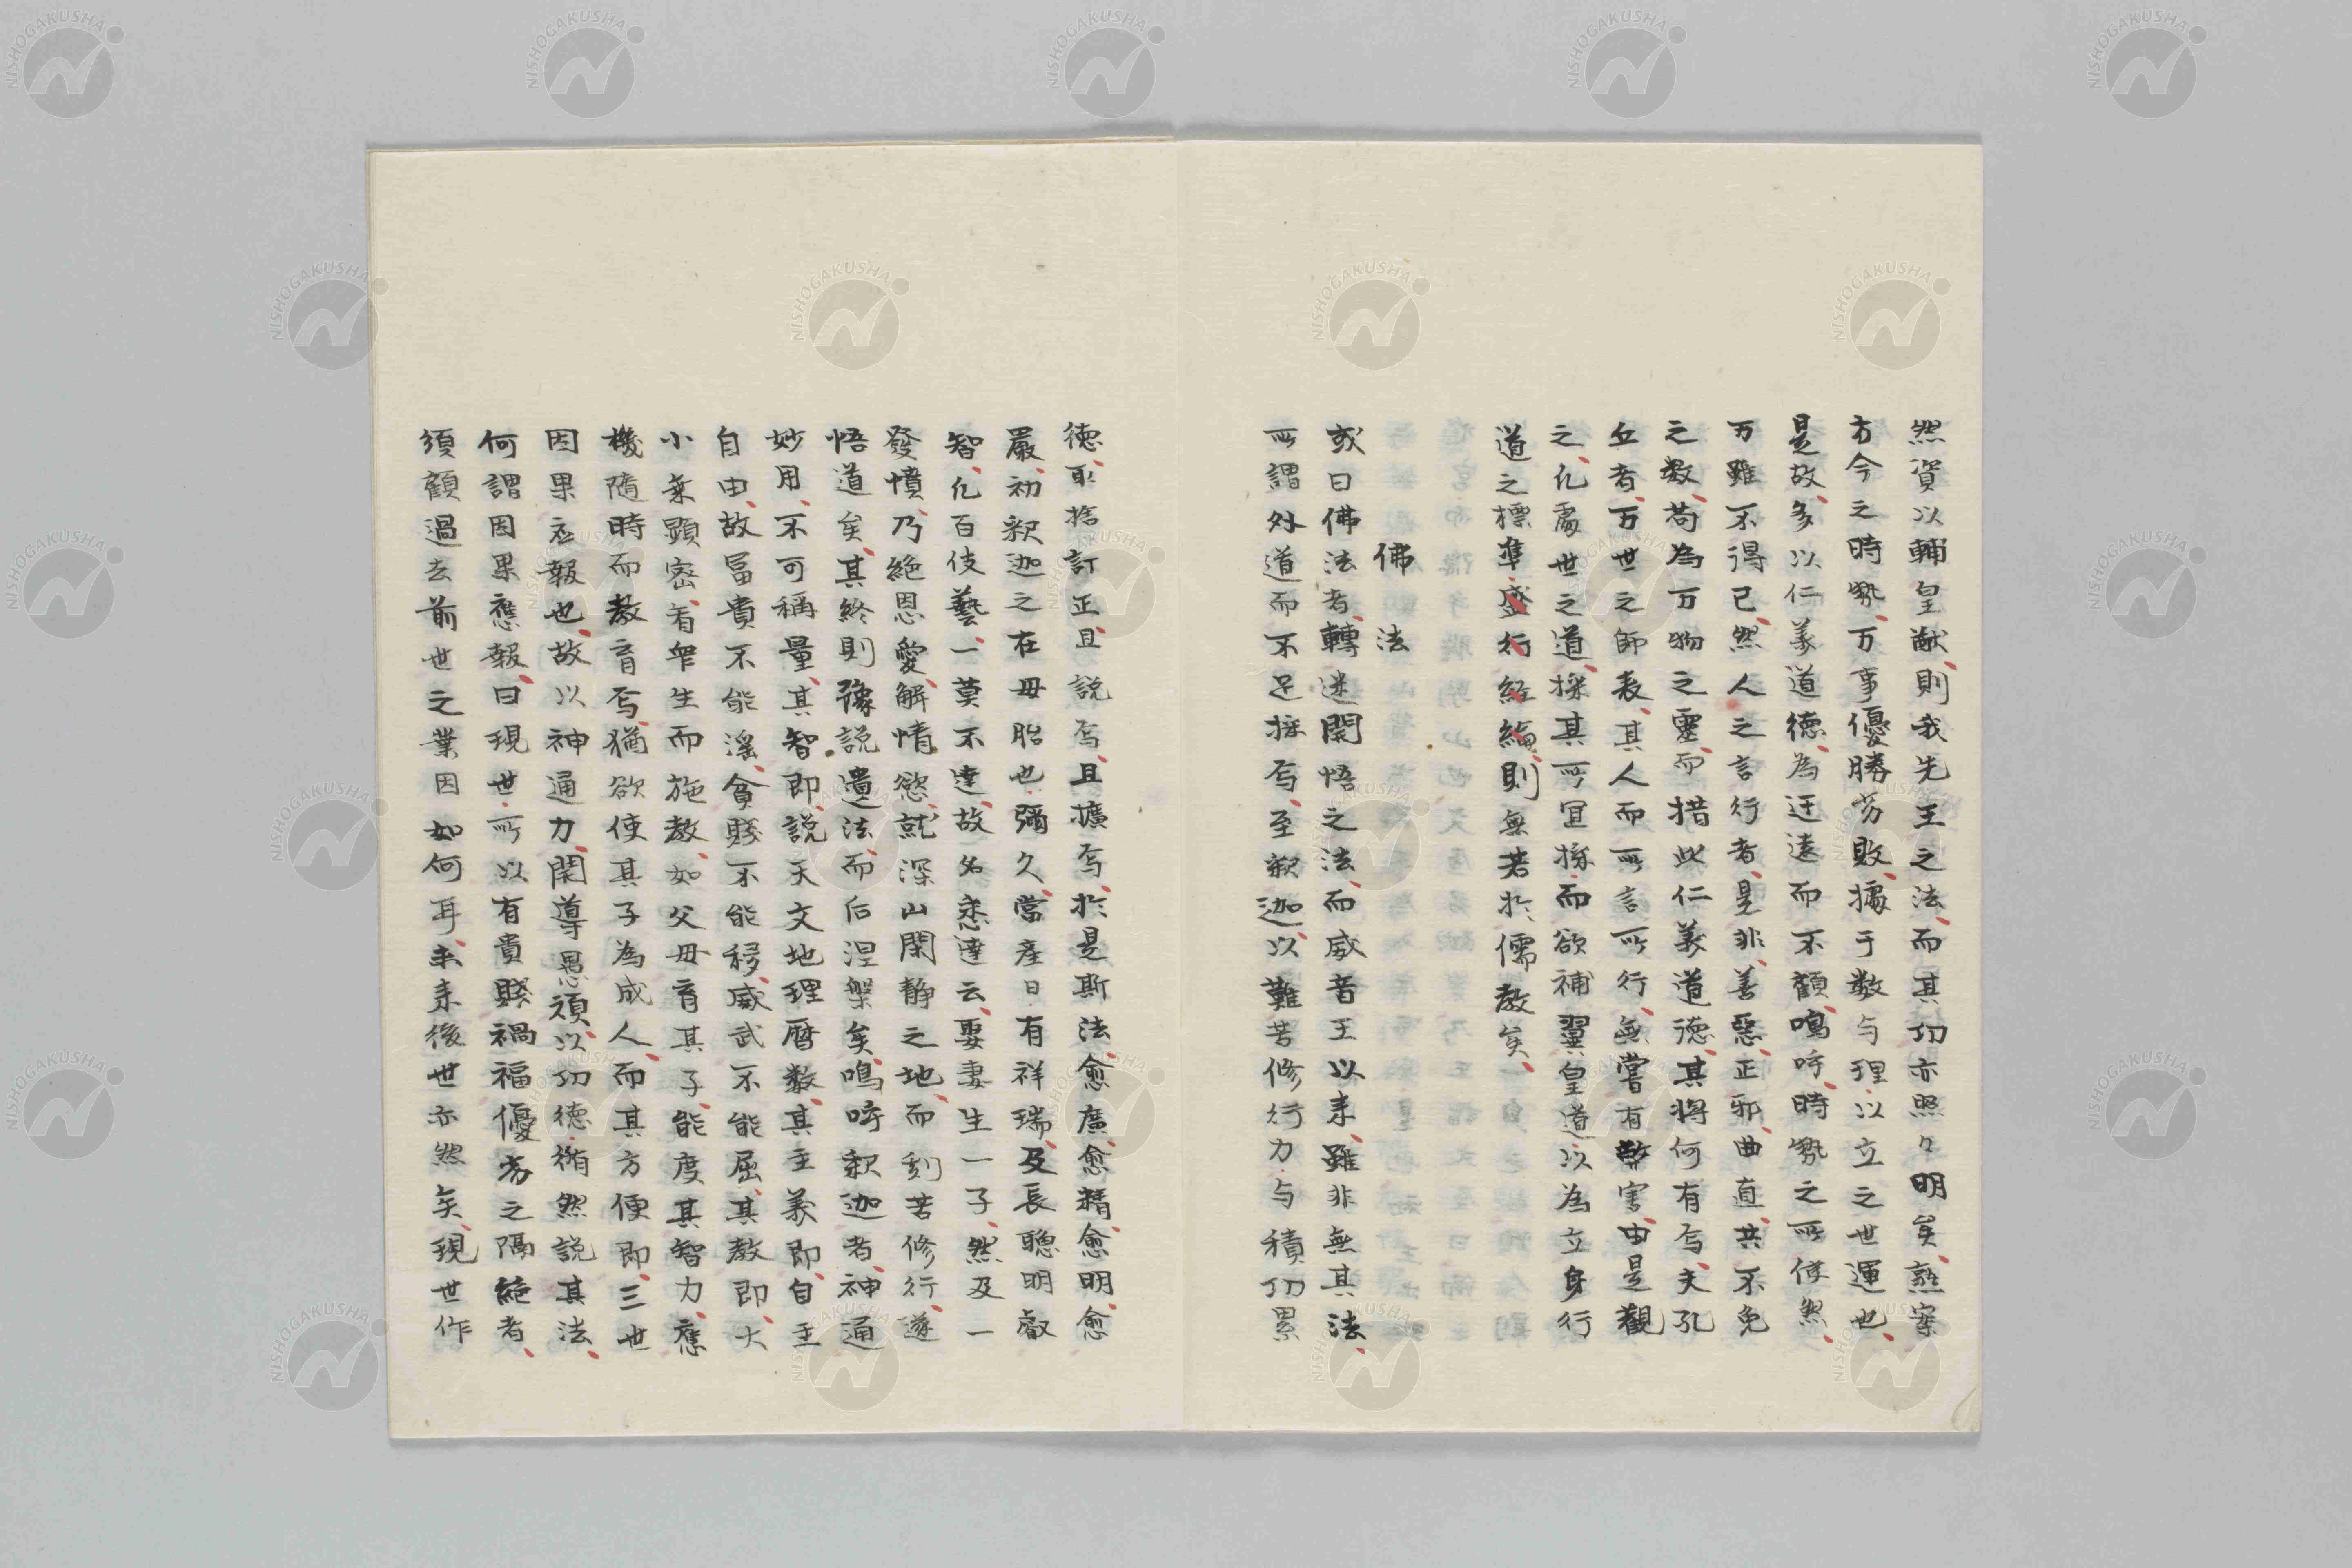 然資以輔皇猷則我先王之法而其功亦照々明矣熟案
方今之時勢万事優勝劣敗據于数与理以立之世運也
是故多以仁義道徳為迂遠而不顧嗚呼時勢之所使然
万雖不得已然人之言行者是非善惡正邪曲直共不免
之数苟為万物之靈而措此仁義道徳其將何有焉夫孔
丘者万世之師表其人而所言所行無嘗有弊害由是觀
之凡處世之道採其所宜據而欲補翼皇道以為立身行
道之標準盛行経綸則無若於儒教矣
佛法
或曰佛法者轉迷開悟之法而威音王以来雖非無其法
所謂外道而不足採焉至釈迦以難苦修行力与積功累
徳取捨訂正且説焉且擴焉於是斯法愈廣愈精愈明愈
嚴初釈迦之在母胎也彌久當産日有祥瑞及長聰明叡
智凡百伎藝一莫不達故名悉達云娶妻生一子然及一
發憤乃絶恩愛解情慾就深山閑静之地而刻苦修行遂
悟道矣其終則豫説遺法而后涅槃矣嗚呼釈迦者神通
妙用不可稱量其智即説天文地理暦数其主義即自主
自由故冨貴不能滛貧賤不能移威武不能屈其教即大
小乗顕密看衆生而施教如父母育其子能度其智力應
機隨時而教育焉猶欲使其子為成人而其方便即三世
因果応報也故以神通力開導愚頑以功徳循然説其法
何謂因果應報曰現世所以有貴賤禍福優劣之隔絶者
須顧過去前世之業因如何耳未来後世亦然矣現世作